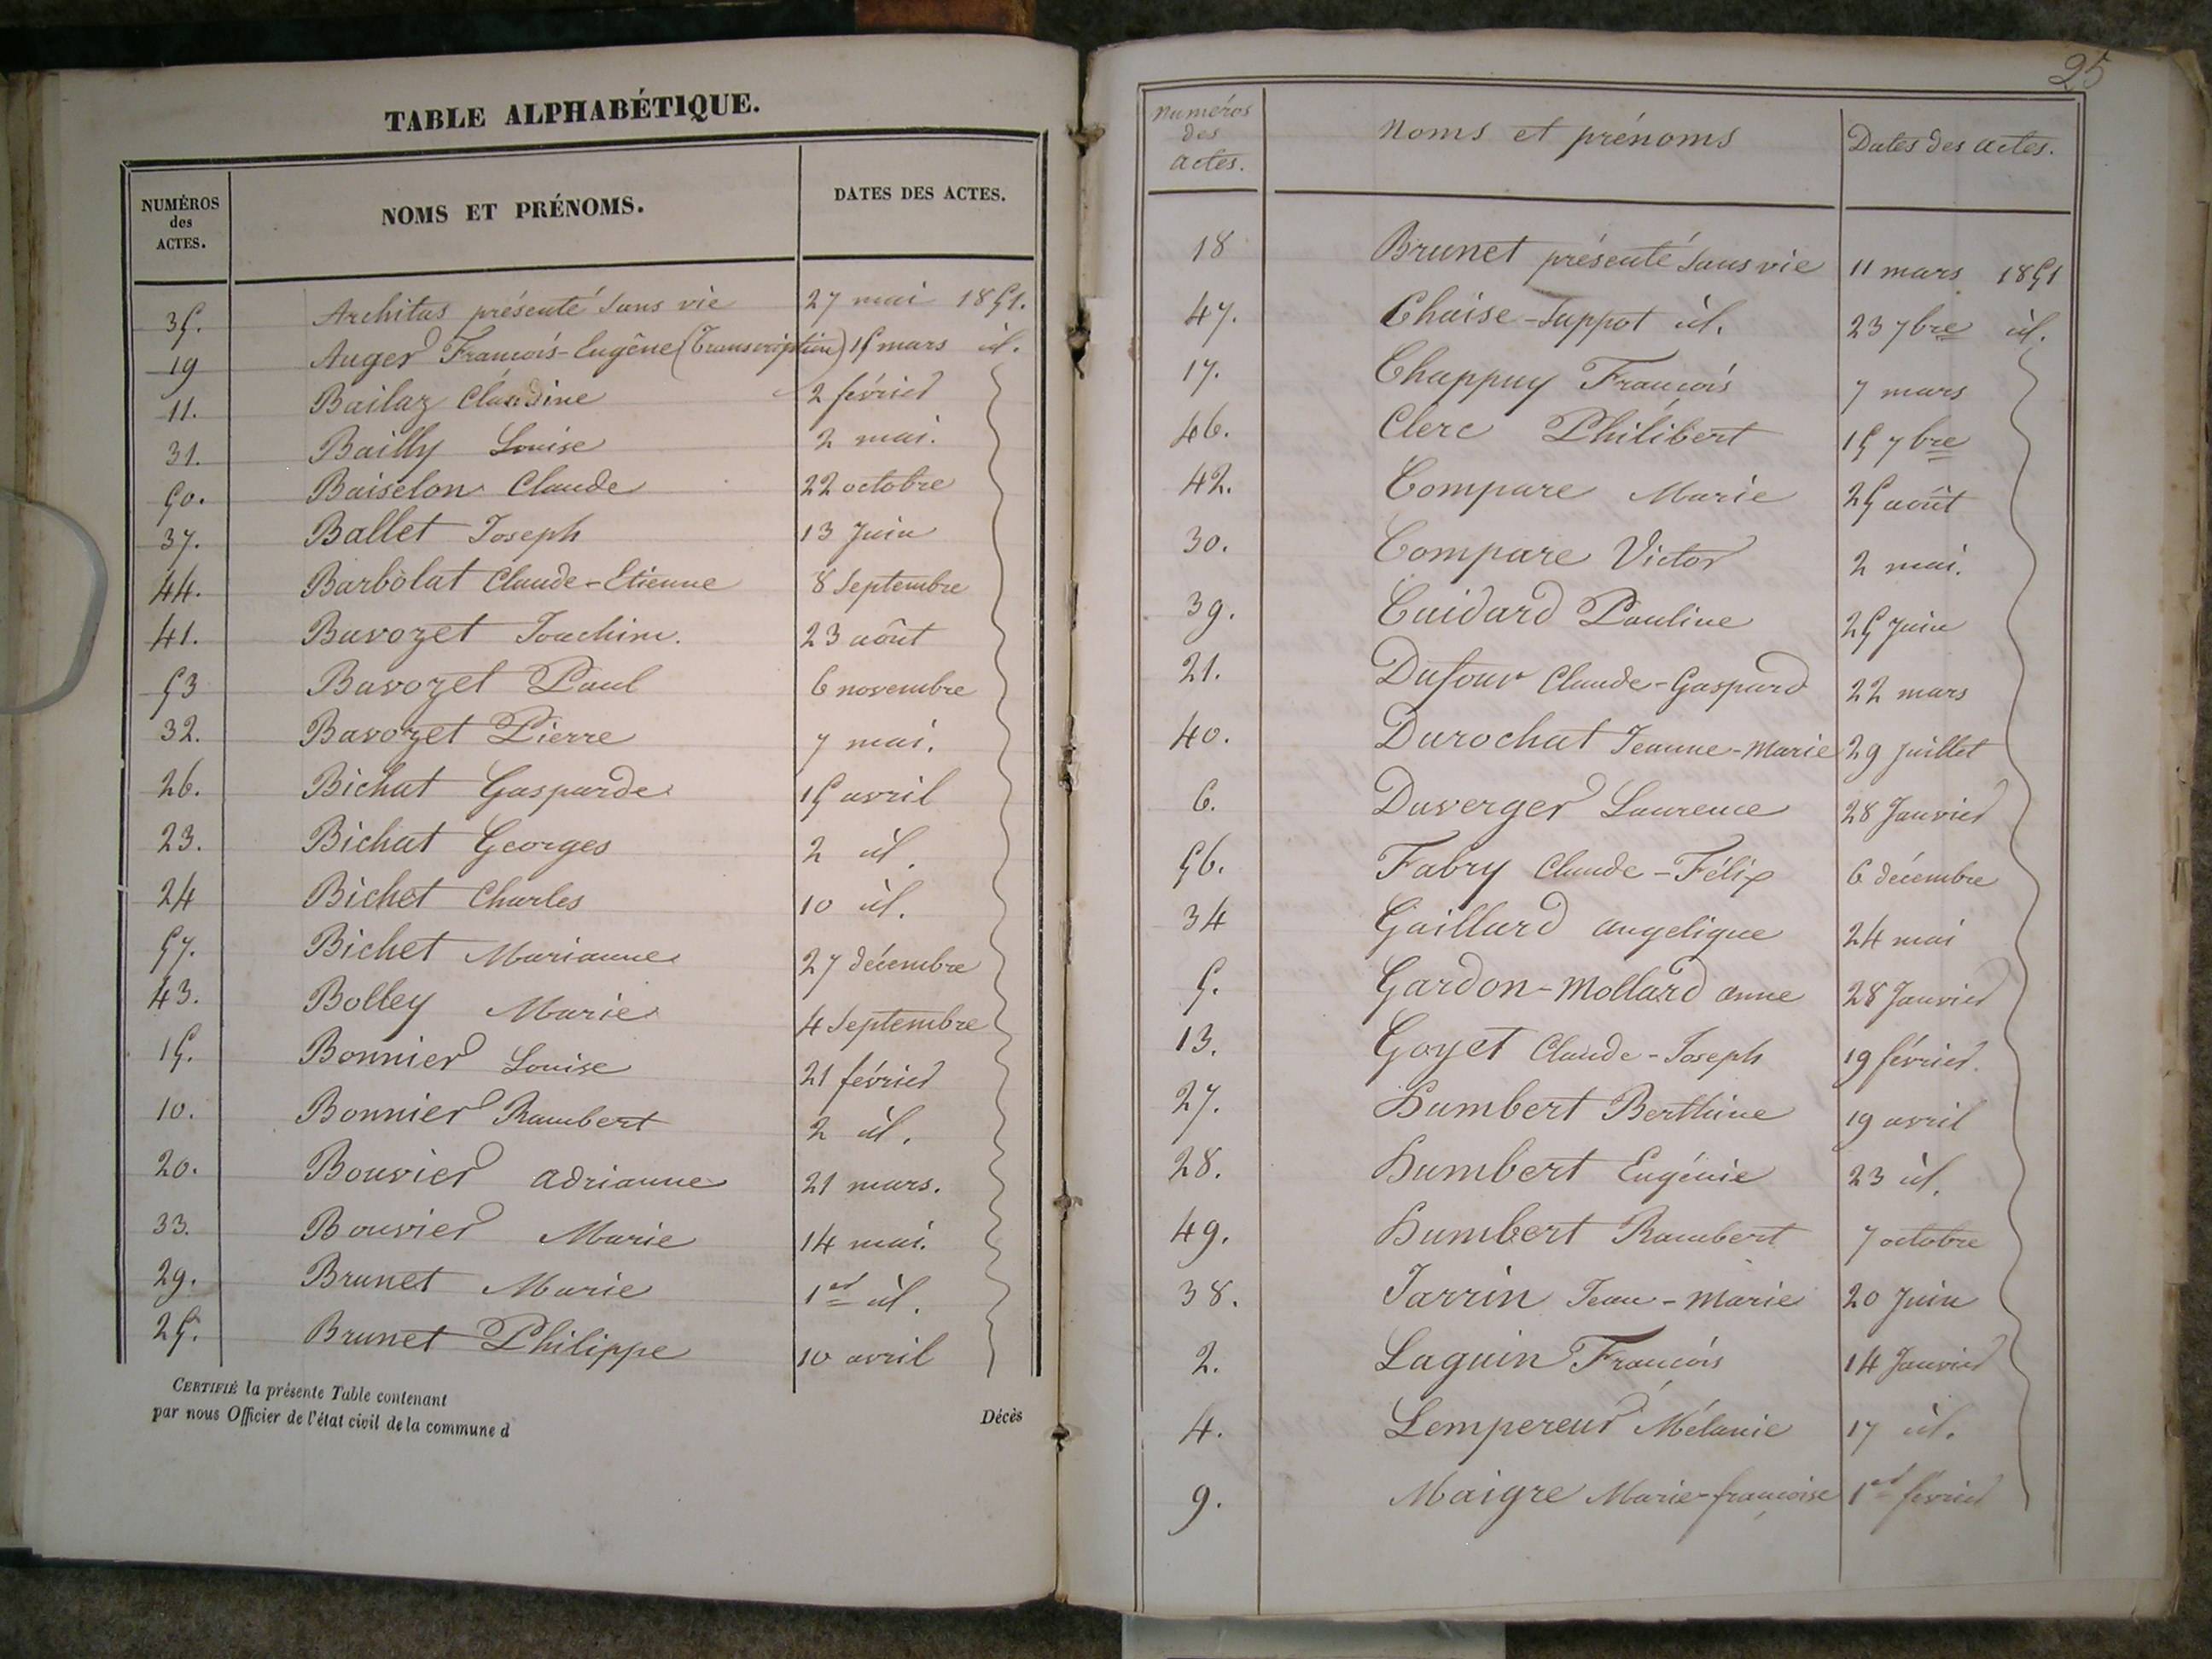 TABLE ALPHABÉTIQUE.
NUMÉROS des ACTES. NOMS ET PRÉNOMS. DATES DES ACTES.
35. Architas présenté sans vie 27 mai 1851.
19 Auger François-Eugène (Transcription) 15 mars id.
11. Bailaz Claudine 2 février
31. Bailly Louise 2 mai.
50. Baiselon Claude 22 octobre
37. Ballet Joseph 13 Juin
44. Barbolat Claude-Etienne 8 Septembre
41. Bavozet Joachim. 23 août
53 Bavozet Paul 6 novembre
32. Bavozet Pierre 7 mai.
26. Bichat Gasparde 15 avril
23. Bichat Georges 2 id.
24 Bichet Charles 10 id.
57. Bichet Marianne 27 décembre
43. Bolley Marie 4 Septembre
15. Bonnier Louise 21 février
10. Bonnier Rambert 2 id.
20. Bouvier adrianne 21 mars.
33. Bouvier Marie 14 mai.
29. Brunet Marie 1er id.
25. Brunet Philippe 10 avril
CERTIFIÉ la présente Table contenant Décès
par nous Officier de l'état civil de la commune d
25
Numéros des actes. Noms et prénoms Dates des actes.
18 Brunet présenté sans vie 11 mars 1851
47. Chaise-Tuppot id. 23 7bre id.
17. Chappuy François 7 mars
46. Clerc Philibert 15 7bre
42. Compare Marie 25 août
30. Compare Victor 2 mai.
39. Cuidard Pauline 25 Juin
21. Dufour Claude-Gaspard 22 mars
40. Durochat Jeanne-Marie 29 Juillet
6. Duverger Laurence 28 Janvier
56. Fabry Claude-Félix 6 décembre
34 Gaillard angelique 24 mai
5. Gardon-Mollard anne 28 Janvier
13. Goyet Claude-Joseph 19 février.
27. Humbert Berthine 19 avril
28. Humbert Eugénie 23 id.
49. Humbert Rambert 7 octobre
38. Jarrin Jean-Marie 20 Juin
2. Laguin François 14 Janvier
4. Lempereur Mélanie 17 id.
9. Maigre Marie-françoise 1er février